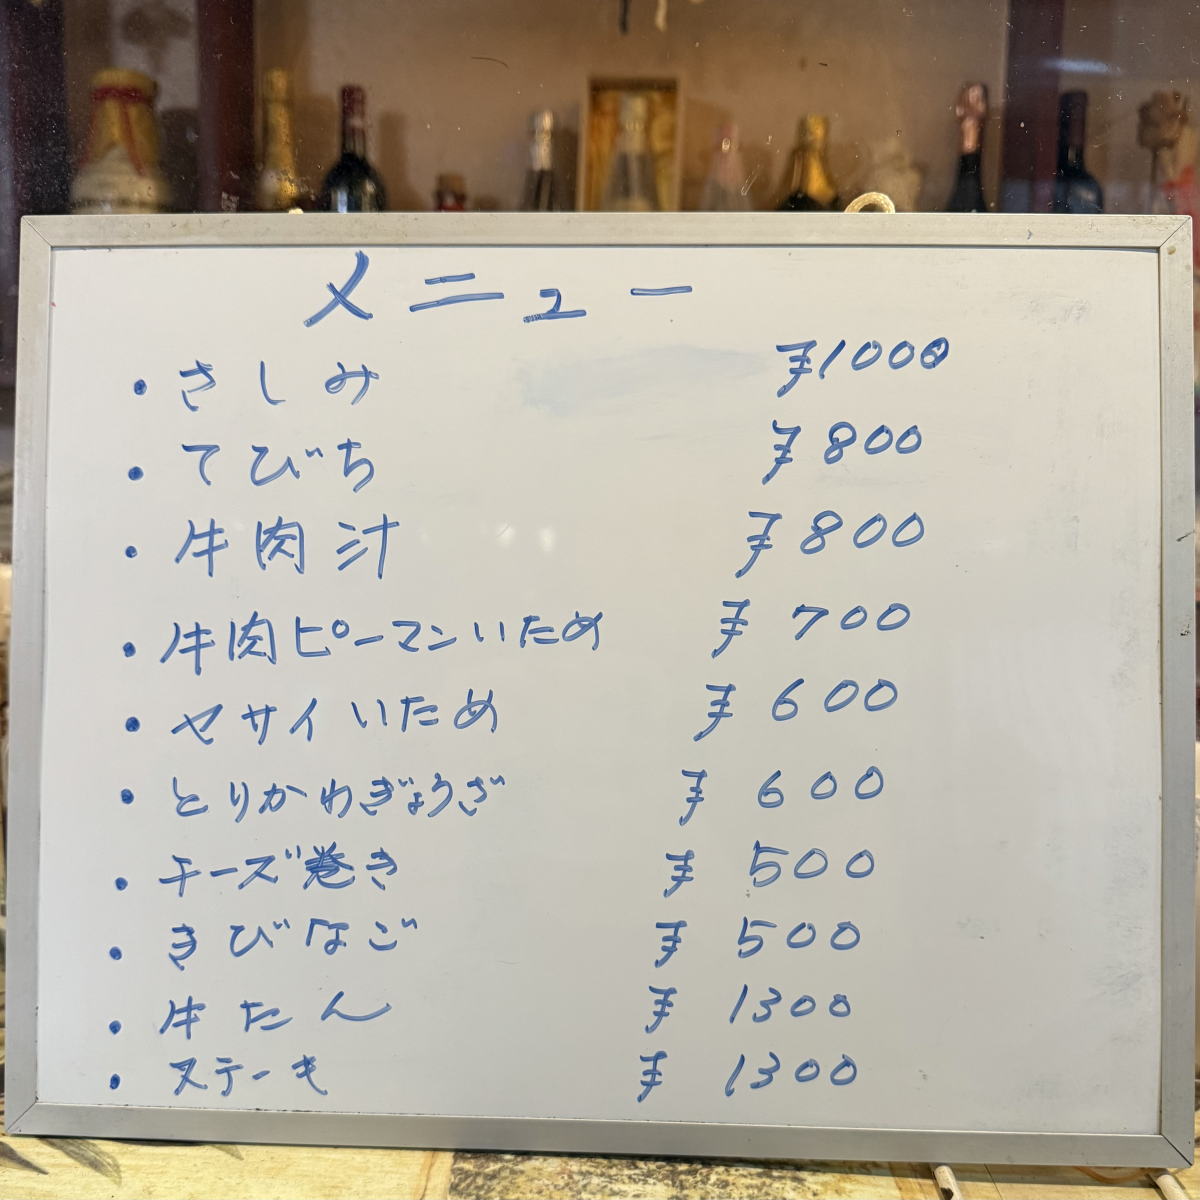 メニュー
・さしみ ¥1000
・てびち ¥800
・牛肉汁 ¥800
・牛肉ピーマンいため ¥700
・ヤサイいため ¥600
・とりかわぎょうざ ¥600
・チーズ巻き ¥500
・きびなご ¥500
・牛たん ¥1300
・ステーキ ¥1300